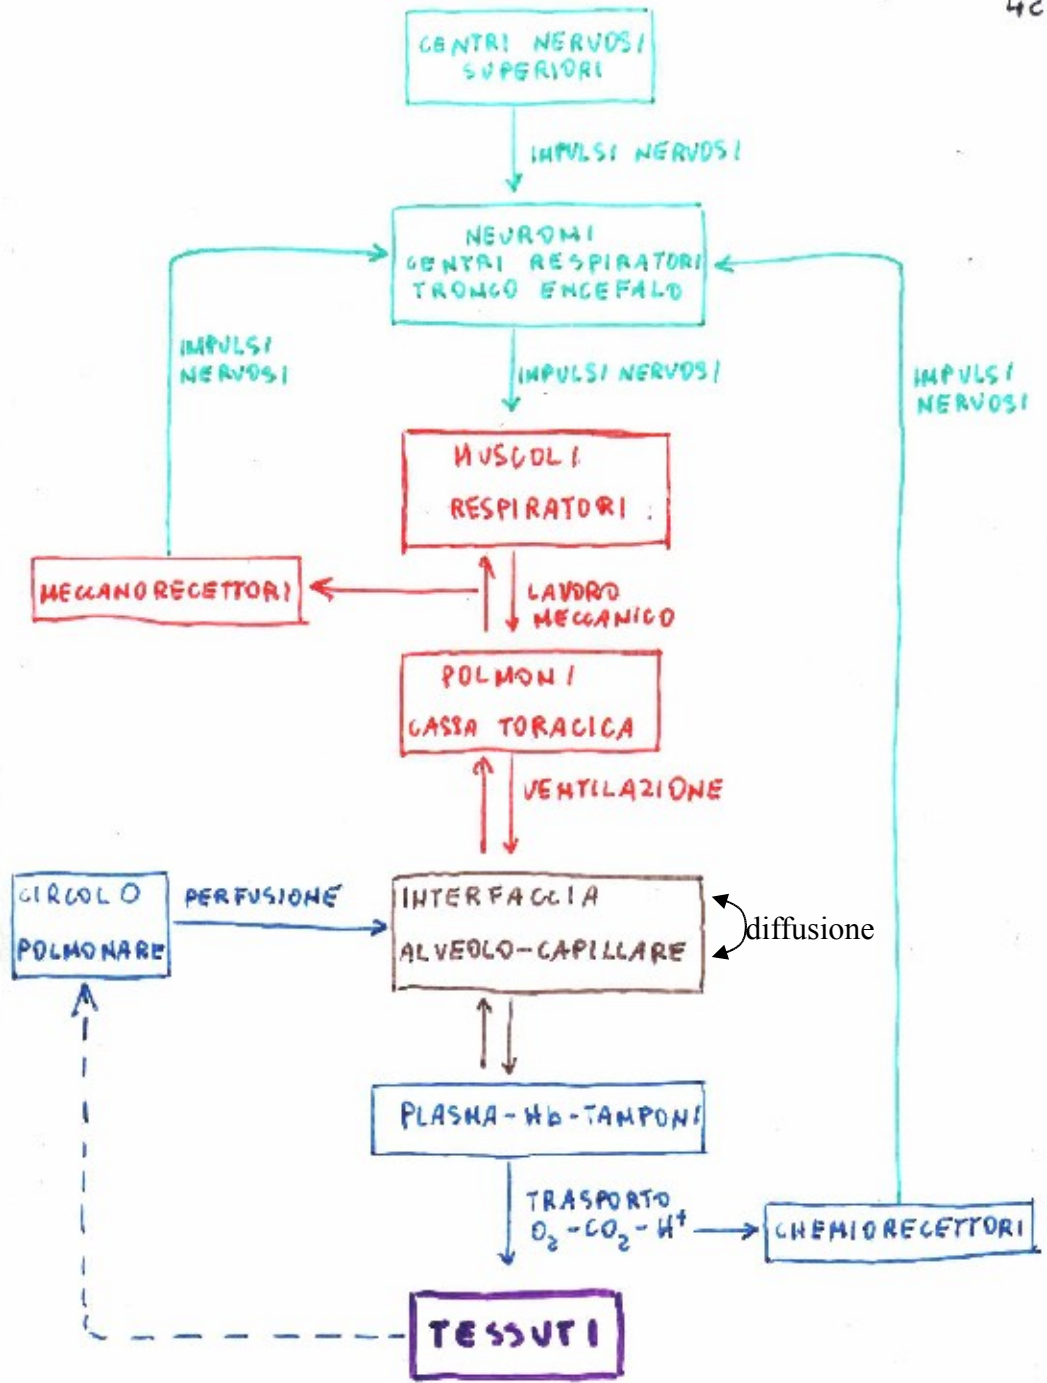 4c
CENTRI NERVOSI
SUPERIORI
IMPULSI NERVOSI
NEURONI
CENTRI RESPIRATORI
TRONCO ENCEFALO
IMPULSI
NERVOSI
IMPULSI NERVOSI
IMPULSI
NERVOSI
MUSCOLI
RESPIRATORI
MECCANORECETTORI
LAVORO
MECCANICO
POLMONI
CASSA TORACICA
VENTILAZIONE
CIRCOLO
POLMONARE
PERFUSIONE
INTERFACCIA
ALVEOLO-CAPILLARE
diffusione
PLASMA-Hb-TAMPONI
TRASPORTO
O₂-CO₂-H⁺
CHEMIORECETTORI
TESSUTI